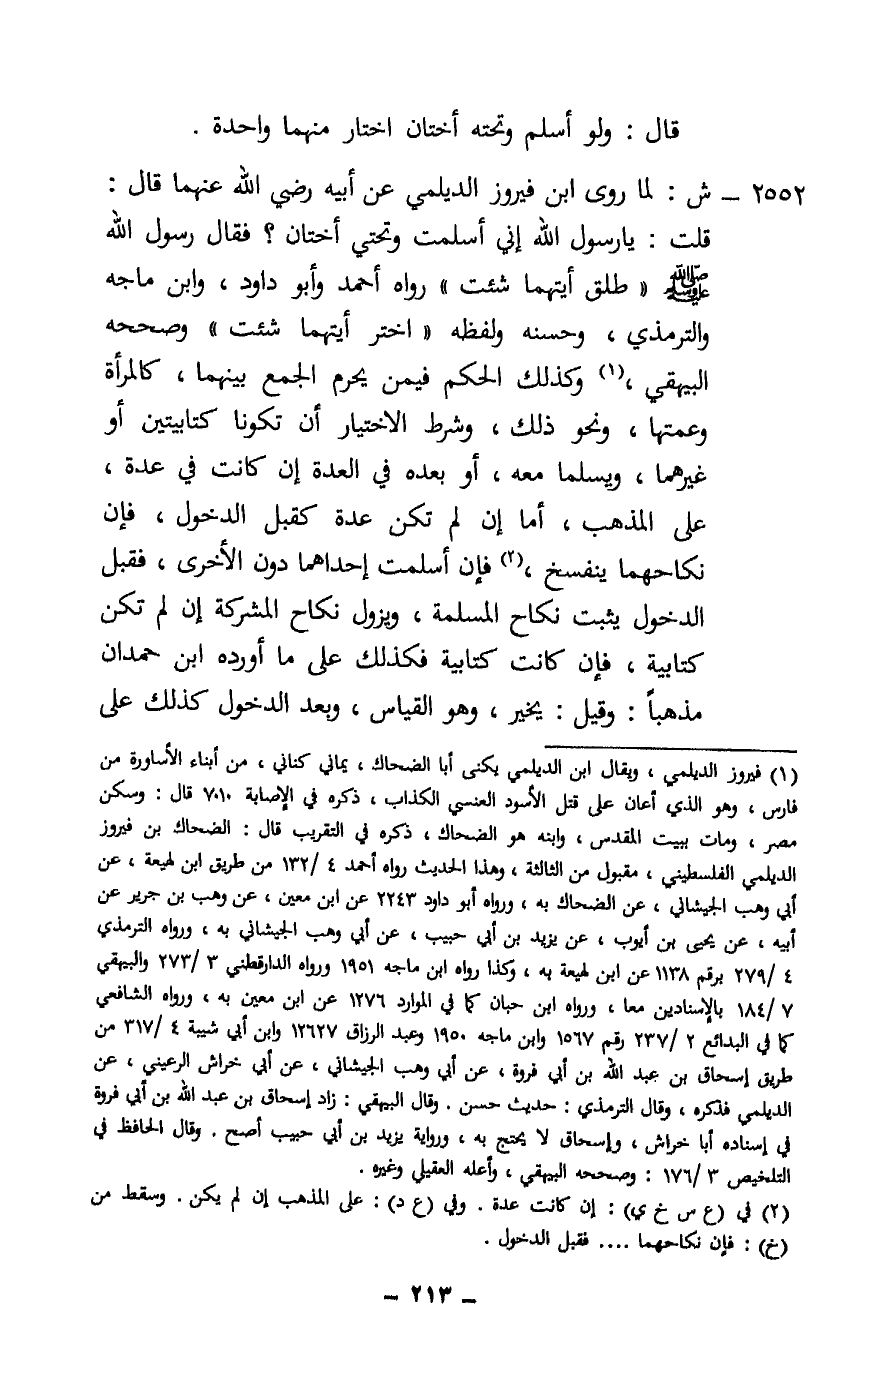 قال : ولو أسلم وتحته أختان اختار منهما واحدة .
٢٥٥٢ – ش : لما روى ابن فيروز الديلمي عن أبيه رضي الله عنهما قال :
قلت : يارسول الله إني أسلمت وتحتي أختان ؟ فقال رسول الله
ﷺ « طلق أيتهما شئت » رواه أحمد وأبو داود ، وابن ماجه
والترمذي ، وحسنه ولفظه « اختر أيتهما شئت » وصححه
البيهقي ،(١) وكذلك الحكم فيمن يحرم الجمع بينهما ، كالمرأة
وعمتها ، ونحو ذلك ، وشرط الاختيار أن تكونا كتابيتين أو
غيرهما ، ويسلما معه ، أو بعده في العدة إن كانت في عدة ،
على المذهب ، أما إن لم تكن عدة كقبل الدخول ، فإن
نكاحهما ينفسخ ،(٢) فإن أسلمت إحداهما دون الأخرى ، فقبل
الدخول يثبت نكاح المسلمة ، ويزول نكاح المشركة إن لم تكن
كتابية ، فإن كانت كتابية فكذلك على ما أورده ابن حمدان
مذهباً : وقيل : يخير ، وهو القياس ، وبعد الدخول كذلك على
(١) فيروز الديلمي ، ويقال ابن الديلمي يكنى أبا الضحاك ، يماني كناني ، من أبناء الأساورة من
فارس ، وهو الذي أعان على قتل الأسود العنسي الكذاب ، ذكره في الإصابة ٧٠١٠ قال : وسكن
مصر ، ومات ببيت المقدس ، وابنه هو الضحاك ، ذكره في التقريب قال : الضحاك بن فيروز
الديلمي الفلسطيني ، مقبول من الثالثة ، وهذا الحديث رواه أحمد ٤ /١٣٢ من طريق ابن لهيعة ، عن
أبي وهب الجيشاني ، عن الضحاك به ، ورواه أبو داود ٢٢٤٣ عن ابن معين ، عن وهب بن جرير عن
أبيه ، عن يحيى بن أيوب ، عن يزيد بن أبي حبيب ، عن أبي وهب الجيشاني به ، ورواه الترمذي
٤ /٢٧٩ برقم ١١٣٨ عن ابن لهيعة به ، وكذا رواه ابن ماجه ١٩٥١ ورواه الدارقطني ٣ /٢٧٣ والبيهقي
٧ /١٨٤ بالإسنادين معا ، ورواه ابن حبان كما في الموارد ١٢٧٦ عن ابن معين به ، ورواه الشافعي
كما في البدائع ٢ /٢٣٧ رقم ١٥٦٧ وابن ماجه ١٩٥٠ وعبد الرزاق ١٢٦٢٧ وابن أبي شيبة ٤ /٣١٧ من
طريق إسحاق بن عبد الله بن أبي فروة ، عن أبي وهب الجيشاني ، عن أبي خراش الرعيني ، عن
الديلمي فذكره ، وقال الترمذي : حديث حسن . وقال البيهقي : زاد إسحاق بن عبد الله بن أبي فروة
في إسناده أبا خراش ، وإسحاق لا يحتج به ، ورواية يزيد بن أبي حبيب أصح . وقال الحافظ في
التلخيص ٣ /١٧٦ : وصححه البيهقي ، وأعله العقيلي وغيره .
(٢) في (ع س خ ي) : إن كانت عدة . وفي (ع د) : على المذهب إن لم يكن . وسقط من
(خ) : فإن نكاحهما .... فقبل الدخول .
– ٢١٣ –